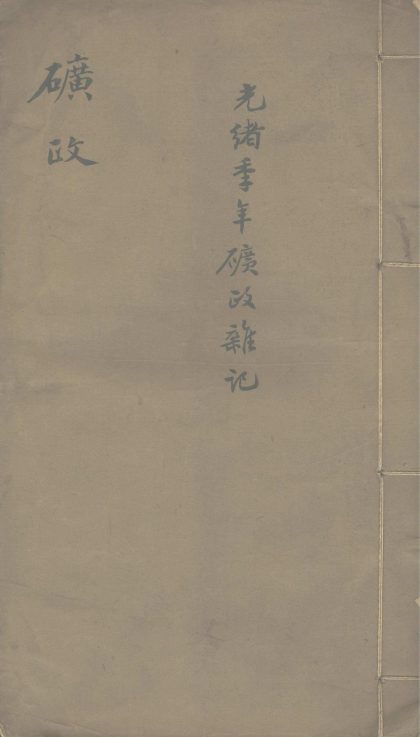 光緒季年礦政雜記
礦政